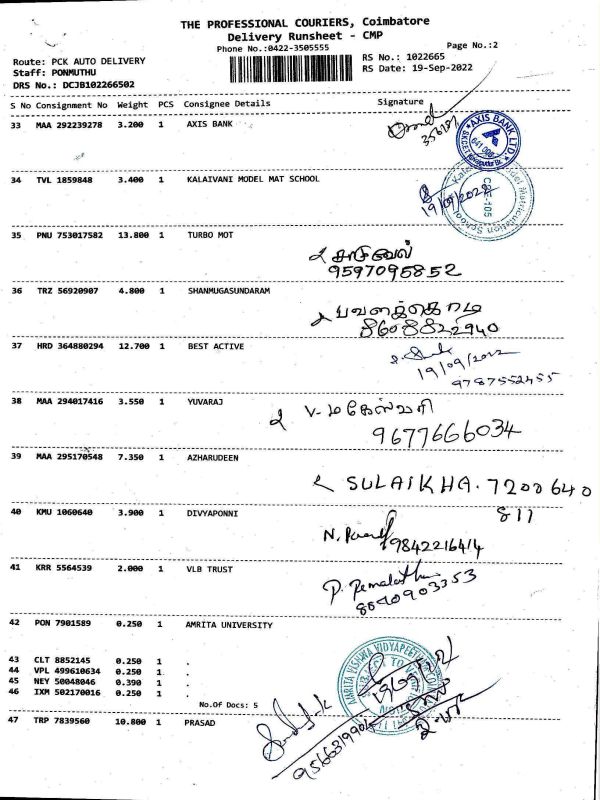 THE PROFESSIONAL COURIERS, Coimbatore
Delivery Runsheet - CMP
Phone No.:0422-3505555
Page No.:2
Route: PCK AUTO DELIVERY
RS No.: 1022665
Staff: PONMUTHU
RS Date: 19-Sep-2022
DRS No.: DCJB102266502
S No Consignment No Weight PCS Consignee Details Signature
33 MAA 292239278 3.200 1 AXIS BANK
AXIS BANK LTD.
34 TVL 1859848 3.400 1 KALAIVANI MODEL MAT SCHOOL
19/09/2022
35 PNU 753017582 13.800 1 TURBO MOT
9597095852
36 TRZ 56920907 4.800 1 SHANMUGASUNDARAM
பவளக்கொடி
8608822940
37 HRD 364880294 12.700 1 BEST ACTIVE
19/09/2022
9787552455
38 MAA 294017416 3.550 1 YUVARAJ
V. மகேஸ்வரி
9677666034
39 MAA 295170548 7.350 1 AZHARUDEEN
SULAIKHA. 7200640
811
40 KMU 1060640 3.900 1 DIVYAPONNI
9842216414
41 KRR 5564539 2.000 1 VLB TRUST
P. Premalatha
42 PON 7901589 0.250 1 AMRITA UNIVERSITY
43 CLT 8852145 0.250 1 .
44 VPL 499610634 0.250 1 .
45 NEY 50048046 0.390 1 .
46 IXM 502170016 0.250 1 .
No.Of Docs: 5
AMRITA VISHWA VIDYAPEETHAM
47 TRP 7839560 10.800 1 PRASAD